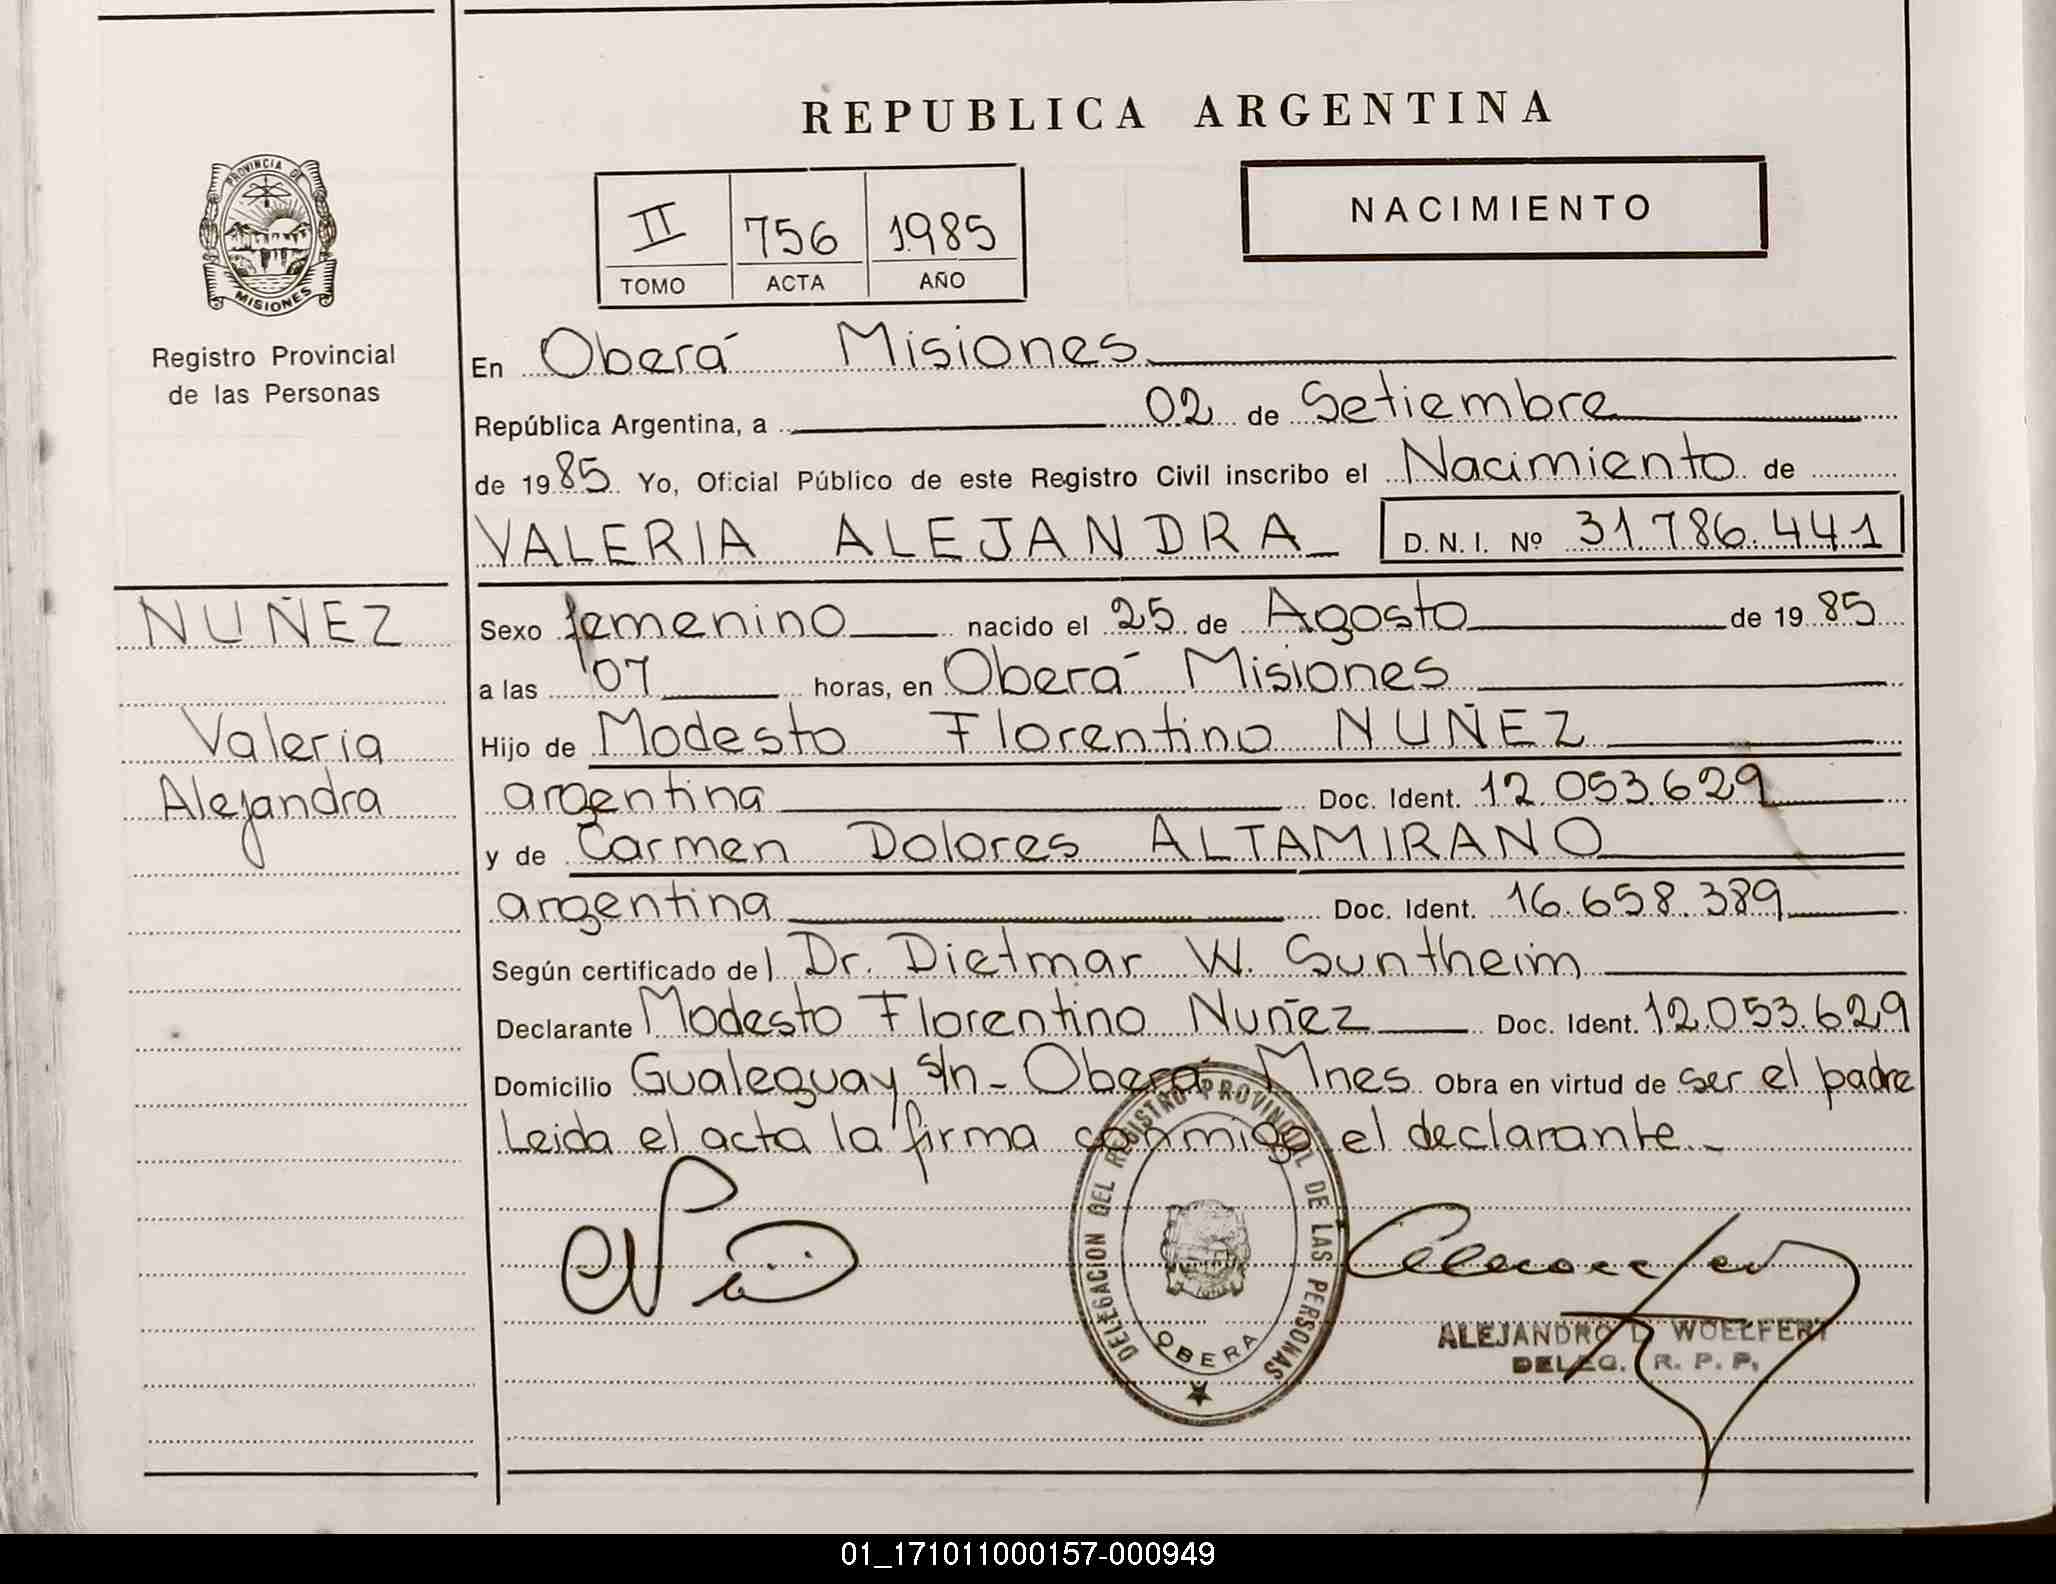 REPUBLICA ARGENTINA
PROVINCIA DE
MISIONES
Registro Provincial
de las Personas
II 756 1985
TOMO ACTA AÑO
NACIMIENTO
En Oberá Misiones
República Argentina, a 02 de Setiembre
de 1985 Yo, Oficial Público de este Registro Civil inscribo el Nacimiento de
VALERIA ALEJANDRA D.N.I. Nº 31.786.441
NUÑEZ
Valeria
Alejandra
Sexo femenino nacido el 25 de Agosto de 1985
a las 07 horas, en Oberá Misiones
Hijo de Modesto Florentino NUÑEZ
argentina Doc. Ident. 12.053.629
y de Carmen Dolores ALTAMIRANO
argentina Doc. Ident. 16.658.389
Según certificado del Dr. Dietmar W. Suntheim
Declarante Modesto Florentino Nuñez Doc. Ident. 12.053.629
Domicilio Gualeguay s/n - Oberá Mnes Obra en virtud de ser el padre
Leida el acta la firma conmigo el declarante.-
DELEGACION DEL REGISTRO PROVINCIAL DE LAS PERSONAS
OBERA
ALEJANDRO L. WOELFERT
DELEG. R. P. P.
01_171011000157-000949